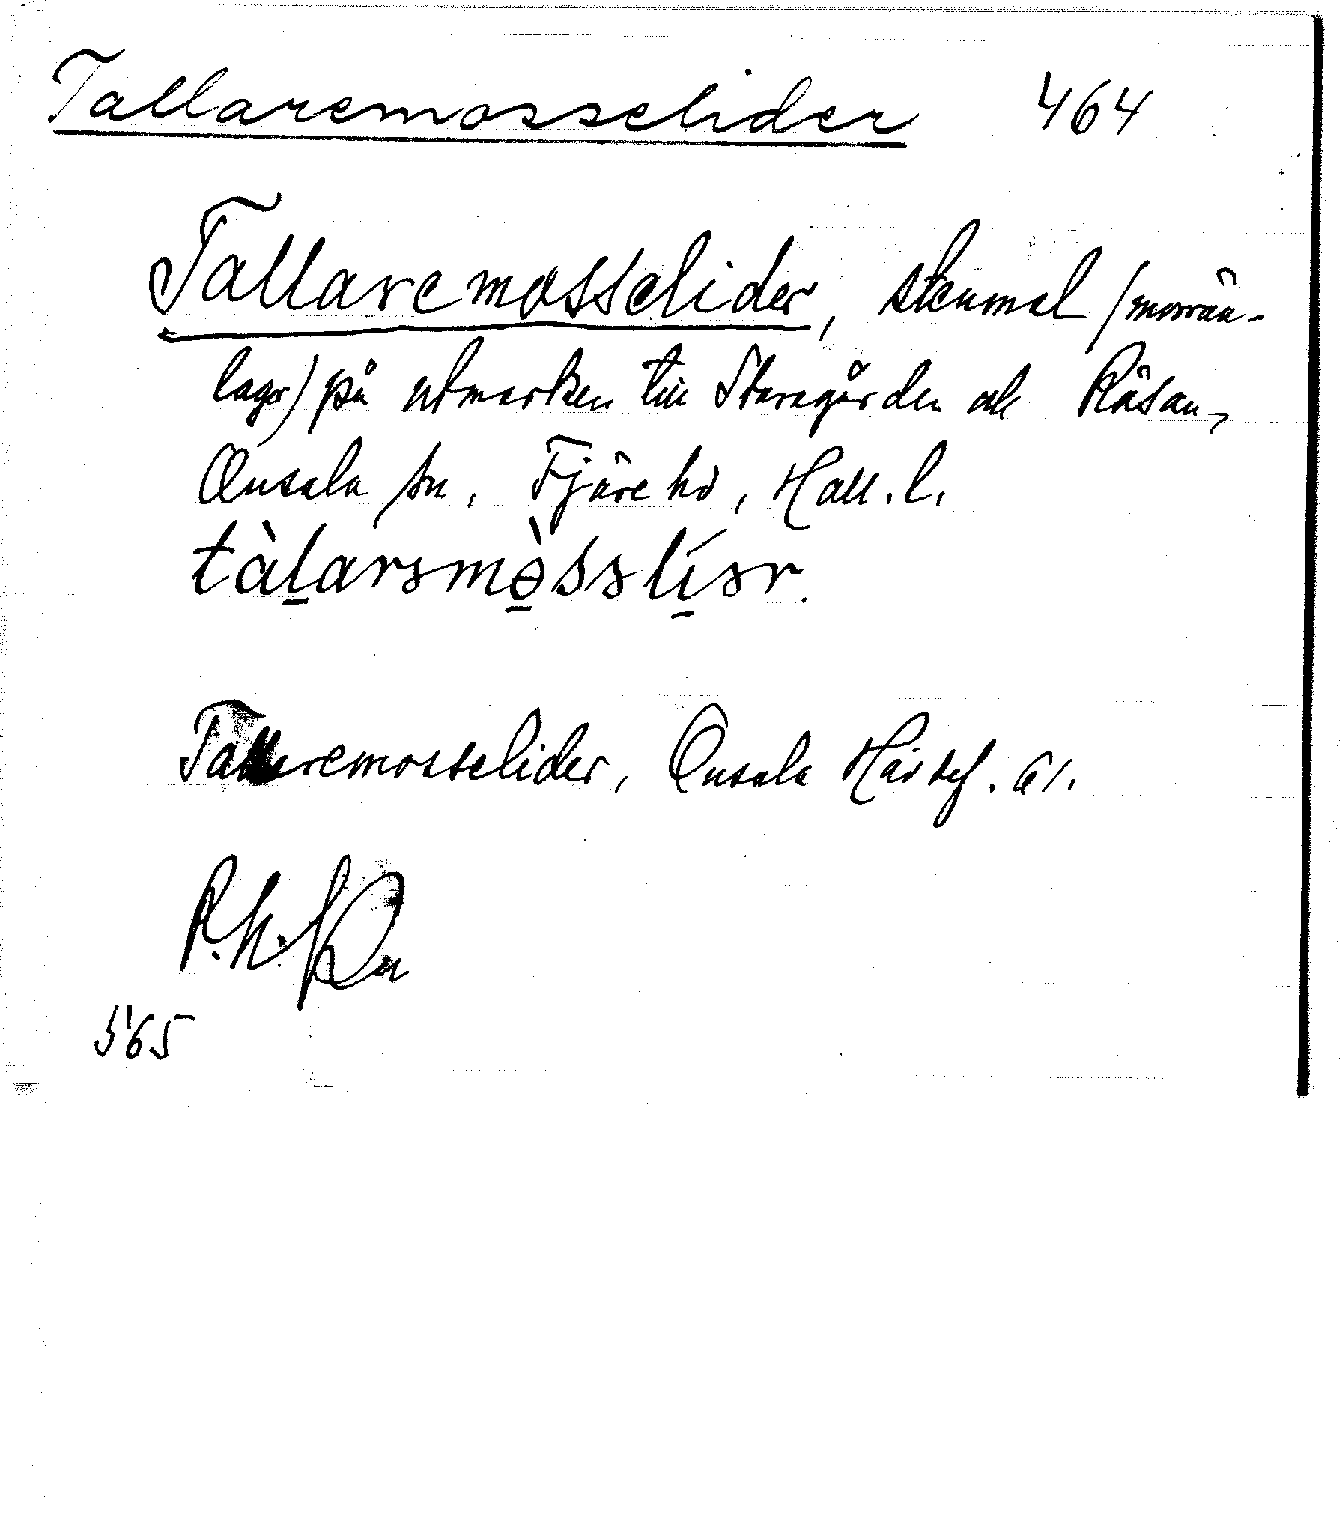 Tallaremosselider 464
Tallaremosselider, stenmal (morän-
lager) på utmarken till Staragården och Råsan,
Onsala sn, Fjäre hd, Hall. l.
tàlarsmòsslísr.
Tallaremosselider, Onsala Hävdef. 61.
P. N.
5'65